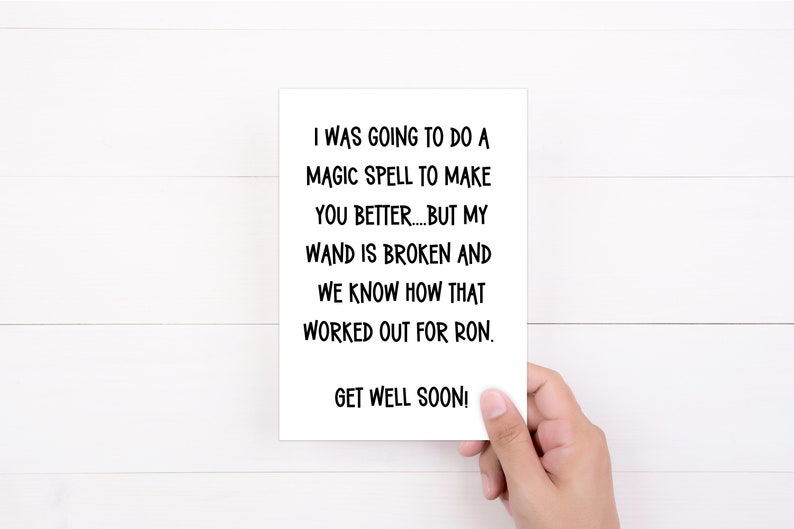 I WAS GOING TO DO A
MAGIC SPELL TO MAKE
YOU BETTER....BUT MY
WAND IS BROKEN AND
WE KNOW HOW THAT
WORKED OUT FOR RON.
GET WELL SOON!